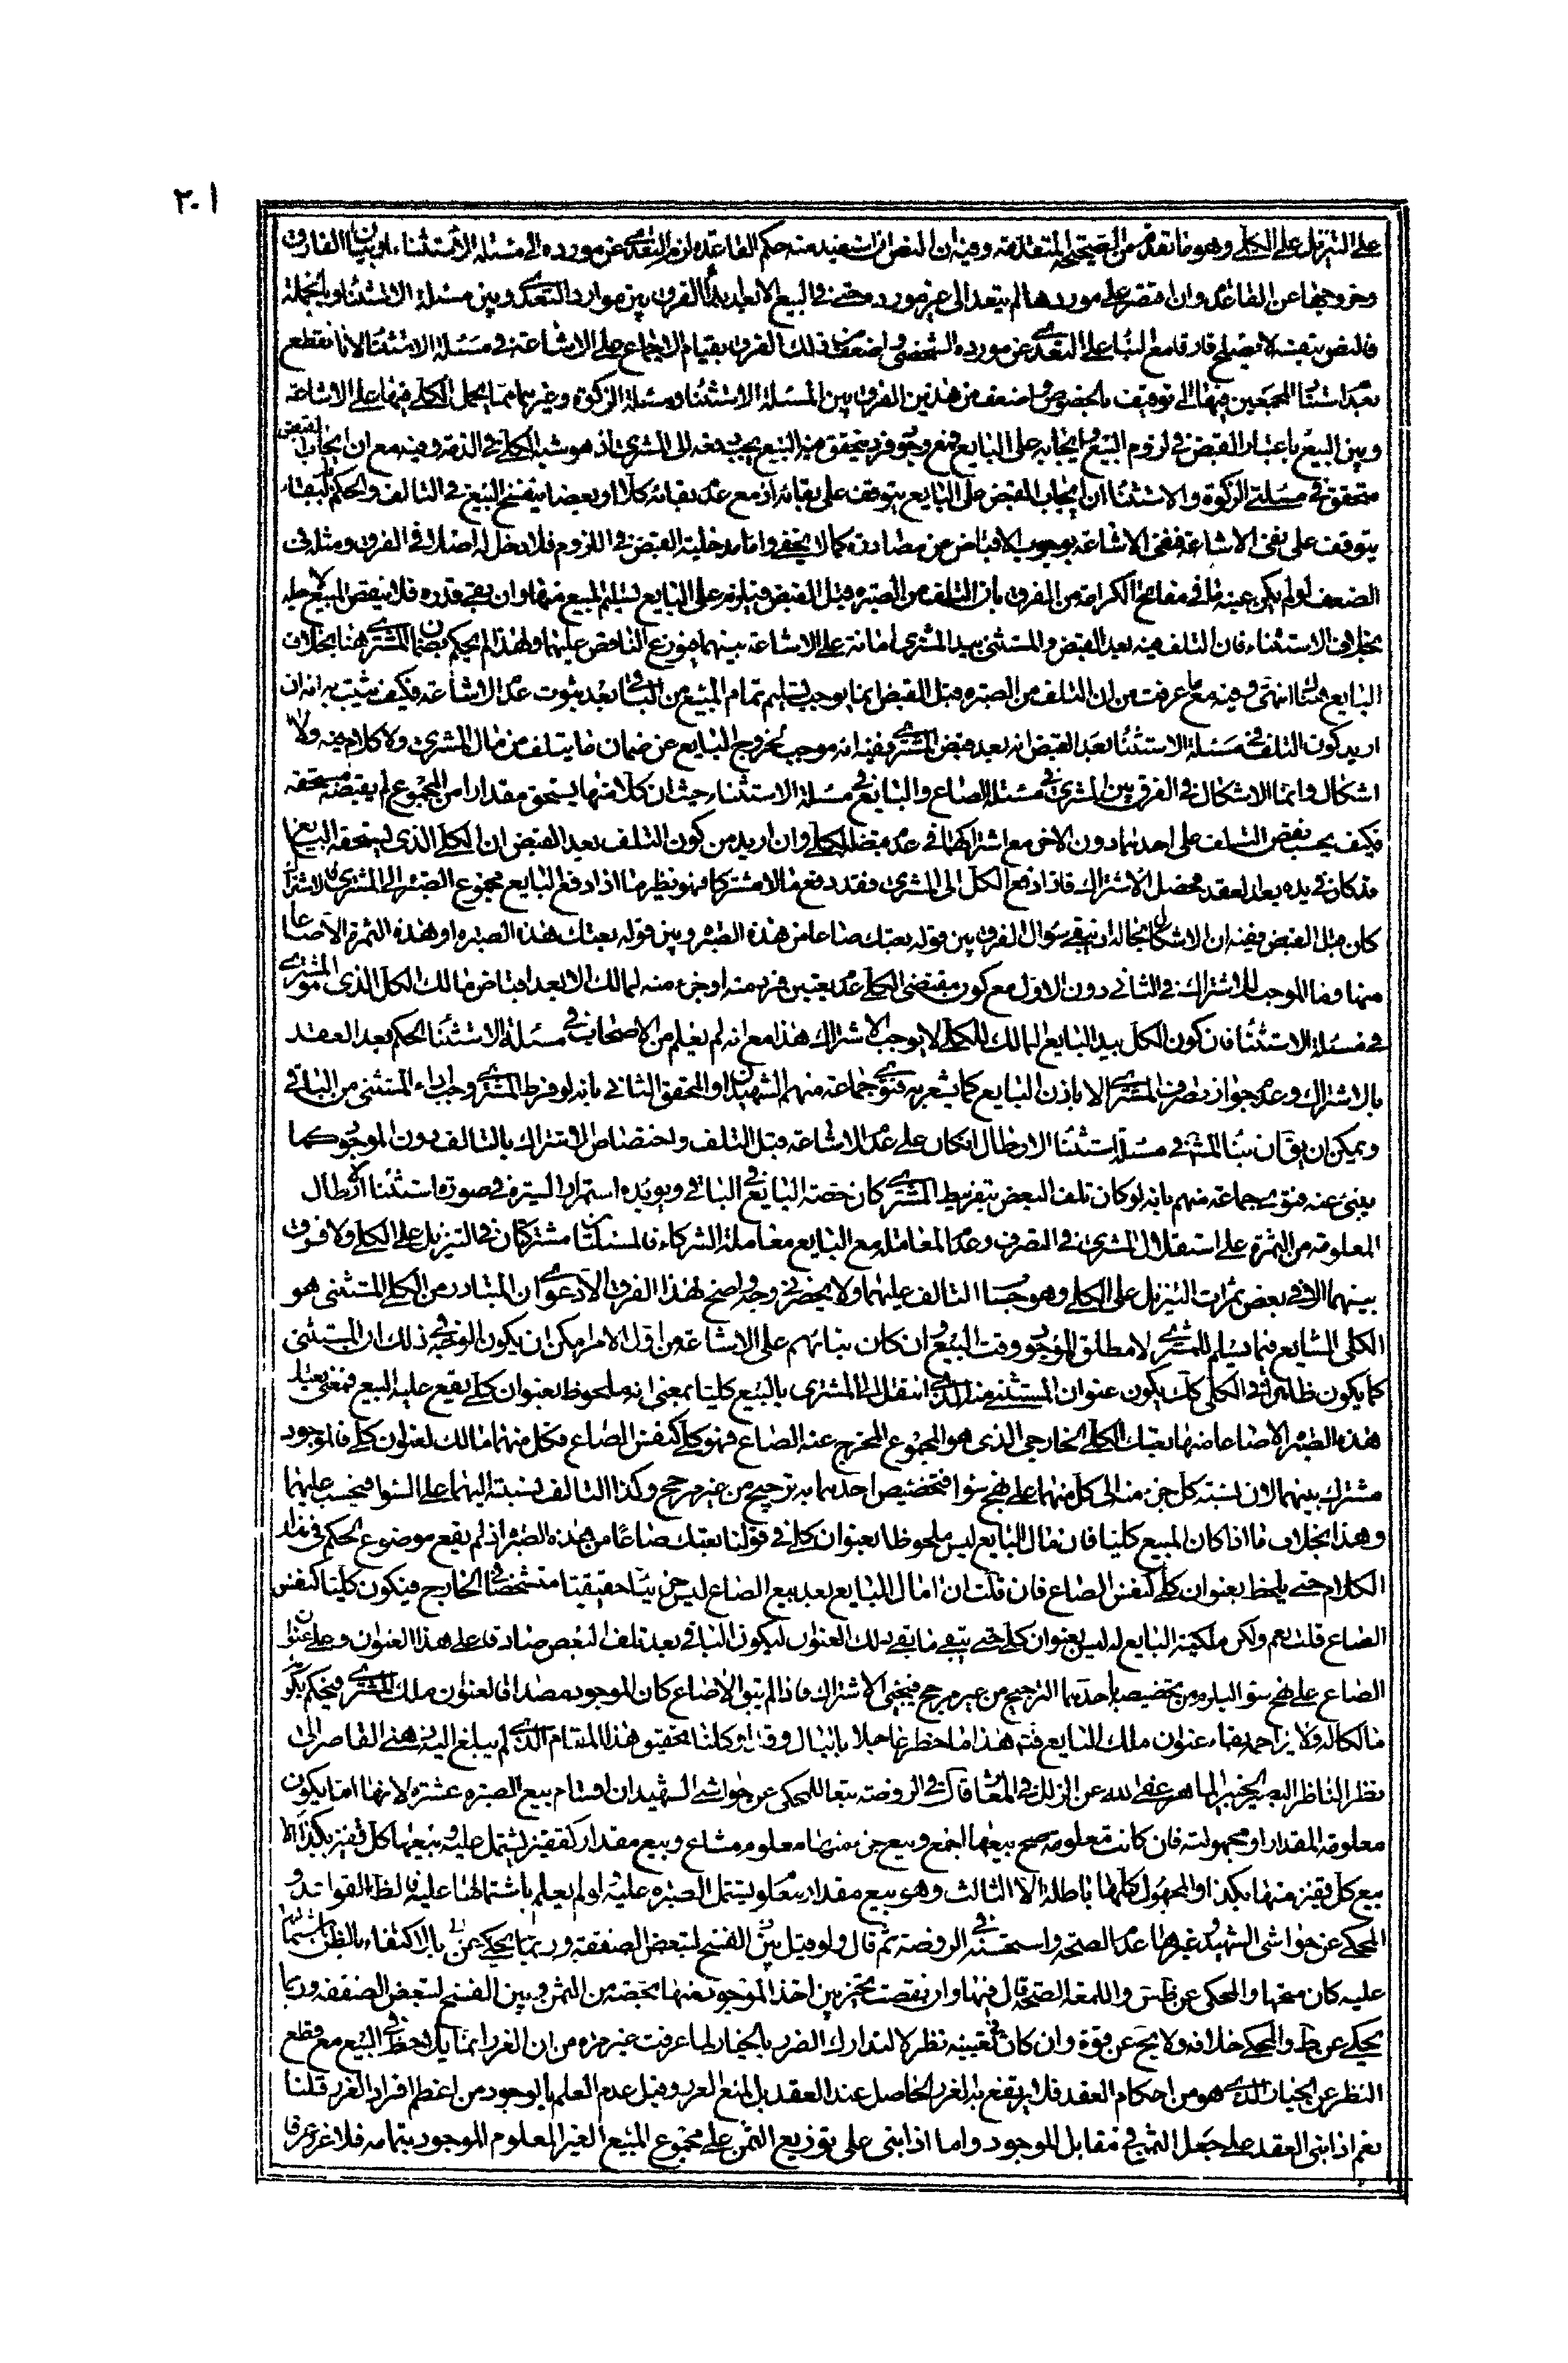 ٢٠١
على التنزيل على الكلي وهو ما تقدم من الصحيحة المتقدمة وفيه ان النص ان استفيد منه حكم القاعدة لزم التعدي عن مورده الى مسئلة الاستثناء او بيان الفارق
وخروجها عن القاعدة وان اقتصر على مورده لم يتعد الى غير مورده حتى في البيع الا بعد ابداء الفرق بين موارد التعدي وبين مسئلة الاستثناء وبالجملة
فالنص بنفسه لا يصلح فارقا مع البناء على التعدي عن مورده الشخصي واضعف من ذلك الفرق بقيام الاجماع على الاشاعة في مسئلة الاستثناء لانا نقطع
بعدم استناد المجمعين فيها الى توقيف بالخصوص واضعف من هذين الفرق بين المسئلة الاستثناء ومسئلة الزكوة وغيرهما مما يحمل الكلي فيها على الاشاعة
وبين البيع باعتبار القبض في لزوم البيع وايجابه على البايع فمع وجود فرد يتحقق منه البيع يجب دفعه الى المشتري اذ هو شبه الكلي في الذمة وفيه مع ان ايجاب القبض
متحقق في مسئلتي الزكوة والاستثناء ان ايجاب القبض على البايع يتوقف على بقائه اذ مع عدم بقائه كلا او بعضا ينفسخ البيع في التالف والحكم بالبقاء
يتوقف على نفي الاشاعة فنفي الاشاعة بوجوب الاقباض عن مصادرة كما لا يخفى واما مدخلية القبض في اللزوم فلا دخل له اصلا في الفرق ومثله في
الضعف لو لم يكن عينه ما في مفتاح الكرامة من الفرق بان التلف من الصبرة قبل القبض فيلزم على البايع تسليم المبيع منها وان بقي قدره فلا ينقص المبيع لاجله
بخلاف الاستثناء فان التلف فيه بعد القبض والمستثنى بيد المشتري امانة على الاشاعة بينهما فيوزع الناقص عليهما ولهذا لم يحكم بضمان المشتري هنا بخلاف
البايع هناك انتهى وفيه مع ما عرفت من ان التلف من الصبرة قبل القبض انما يوجب تسليم تمام المبيع من الباقي بعد ثبوت عدم الاشاعة فكيف يثبت به انه ان
اريد كون التلف في مسئلة الاستثناء بعد القبض انه بعد قبض المشتري ففيه انه موجب لخروج البايع عن ضمان ما يتلف من مال المشتري ولا كلام فيه ولا
اشكال وانما الاشكال في الفرق بين المشتري في مسئلة الصاع والبايع في مسئلة الاستثناء حيث ان كلا منهما يستحق مقدارا من المجموع لم يقبضه مستحقه
فكيف يحسب نقص التلف على احدهما دون الاخر مع اشتراكهما في عدم قبض الكلي وان اريد من كون التلف بعد القبض ان الكلي الذي يستحقه البايع
قد كان في يده بعد العقد فحصل الاشتراك فاذا دفع الكل الى المشتري فقد دفع مالا مشتركا فهو نظير ما اذا دفع البايع مجموع الصبرة الى المشتري فالاشتراك
كان قبل القبض ففيه ان الاشكال بحاله اذ يبقى سؤال الفرق بين قوله بعتك صاعا من هذه الصبرة وبين قوله بعتك هذه الصبرة او هذه الثمرة الا صاعا
منها وما الموجب للاشتراك في الثاني دون الاول مع كون مقتضى الكلي عدم تعين فرد منه او جزء منه لمالك الا بعد اقباض مالك الكل الذي هو المشتري
في مسئلة الاستثناء فان كون الكل بيد البايع المالك للكلي لا يوجب الاشتراك هذا مع انه لم يعلم من الاصحاب في مسئلة الاستثناء الحكم بعد العقد
بالاشتراك وعدم جواز تصرف المشتري الا باذن البايع كما يشعر به فتوى جماعة منهم الشهيدان والمحقق الثاني بانه لو فرط المشتري وجب اداء المستثنى من الباقي
ويمكن ان يق ان بناء المش في مسئلة استثناء الارطال ان كان على عدم الاشاعة قبل التلف واختصاص الاشتراك بالتالف دون الموجود كما
ينبئ عنه فتوى جماعة منهم بانه لو كان تلف البعض بتفريط المشتري كان حصة البايع في الباقي ويؤيده استمرار السيرة في صورة استثناء الارطال
المعلومة من الثمرة على استقلال المشتري في التصرف وعدم المعاملة مع البايع معاملة الشركاء فالمسئلتان مشتركتان في التنزيل على الكلي ولا فرق
بينهما الا في بعض ثمرات التنزيل على الكلي وهو حساب التالف عليهما ولا يحضرني وجه واضح لهذا الفرق الا دعوى ان المتبادر من الكلي المستثنى هو
الكلي الشايع فيما يسلم للمشتري لا مطلق الموجود وقت البيع وان كان بنائهم على الاشاعة من اول الامر امكن ان يكون الوجه في ذلك ان المستثنى
كما يكون ظاهرا في الكلي كك يكون عنوان المستثنى منه الذي انتقل الى المشتري بالبيع كليا بمعنى انه ملحوظ بعنوان كلي يقع عليه البيع فمعنى بعتك
هذه الصبرة الا صاعا منها بعتك الكلي الخارجي الذي هو المجموع المخرج عنه الصاع فهو كلي كنفس الصاع فكل منهما مالك لعنوان كلي فالموجود
مشترك بينهما لان نسبة كل جزء منه الى كل منهما على نهج سواء فتخصيص احدهما به ترجيح من غير مرجح وكذا التالف نسبته اليهما على السواء فيحسب عليهما
وهذا بخلاف ما اذا كان المبيع كليا فان مال البايع ليس ملحوظا بعنوان كلي في قولنا بعتك صاعا من هذه الصبرة اذ لم يقع موضوع الحكم في هذا
الكلام حتى يلحظ بعنوان كلي كنفس الصاع فان قلت ان مال البايع بعد بيع الصاع ليس جزئيا حقيقيا متشخصا في الخارج فيكون كليا كنفس
الصاع قلت نعم ولكن ملكية البايع له ليس بعنوان كلي حتى يبقى ما بقي ذلك العنوان ليكون الباقي بعد تلف البعض صادقا على هذا العنوان وعلى عنوان
الصاع على نهج سواء ليلزم من تخصيصه باحدهما الترجيح من غير مرجح فيجئ الاشتراك فاذا لم يبق الا صاع كان الموجود مصداقا لعنوان ملك المشتري فيحكم بكونه
مالكا له ولا يزاحمه بقاء عنوان ملك البايع فتم هذا ما خطر عاجلا بالبال وقد اوكلنا تحقيق هذا المقام الذي لم يبلغ اليه ذهني القاصر الى
نظر الناظر البصير الخبير الماهر عفى الله عن الزلل في المعاثر قال في الروضة تبعا للمحكي عن حواشي الشهيد ان اقسام بيع الصبرة عشرة لانها اما يكون
معلومة المقدار او مجهولته فان كانت معلومة صح بيعها اجمع وبيع جزء منها معلوم مشاع وبيع مقدار كقفيز يشتمل عليه وبيعها كل قفيز بكذا لا
بيع كل قفيز منها بكذا والمجهول كلها باطلة الا الثالث وهو بيع مقدار معلوم يشتمل الصبرة عليه ولو لم يعلم باشتمالها عليه فظاهر القواعد و
المحكي عن حواشي الشهيد وغيرهما عدم الصحة واستحسنه في الروضة ثم قال ولو قيل بان الفسخ لتبعض الصفقة وربما يحكي عن بالاكتفاء بالظن باشتمالها
عليه كان متجها والمحكي عن ظ س واللمعة الصحة قال فيها وان نقصت تخير بين اخذ الموجود منها بحصة من الثمن وبين الفسخ لتبعض الصفقة وربما
يحكي عن ط والمحكي خلافه ولا يخ عن قوة وان كان في تعيينه نظر لا لتدارك الضرر بالخيار لما عرفت غير مرة من ان الغرر انما يلاحظ في البيع مع قطع
النظر عن الخيار الذي هو من احكام العقد فلا يرتفع به الغرر الحاصل عند العقد بل لمنع الغرر وقيل عدم العلم بالوجود من اعظم افراد الغرر قلنا
نعم اذا بنى العقد على جعل الثمن في مقابل الموجود واما اذا بنى على توزيع الثمن على مجموع المبيع الغير المعلوم الموجود بتمامه فلا غرر عرفا